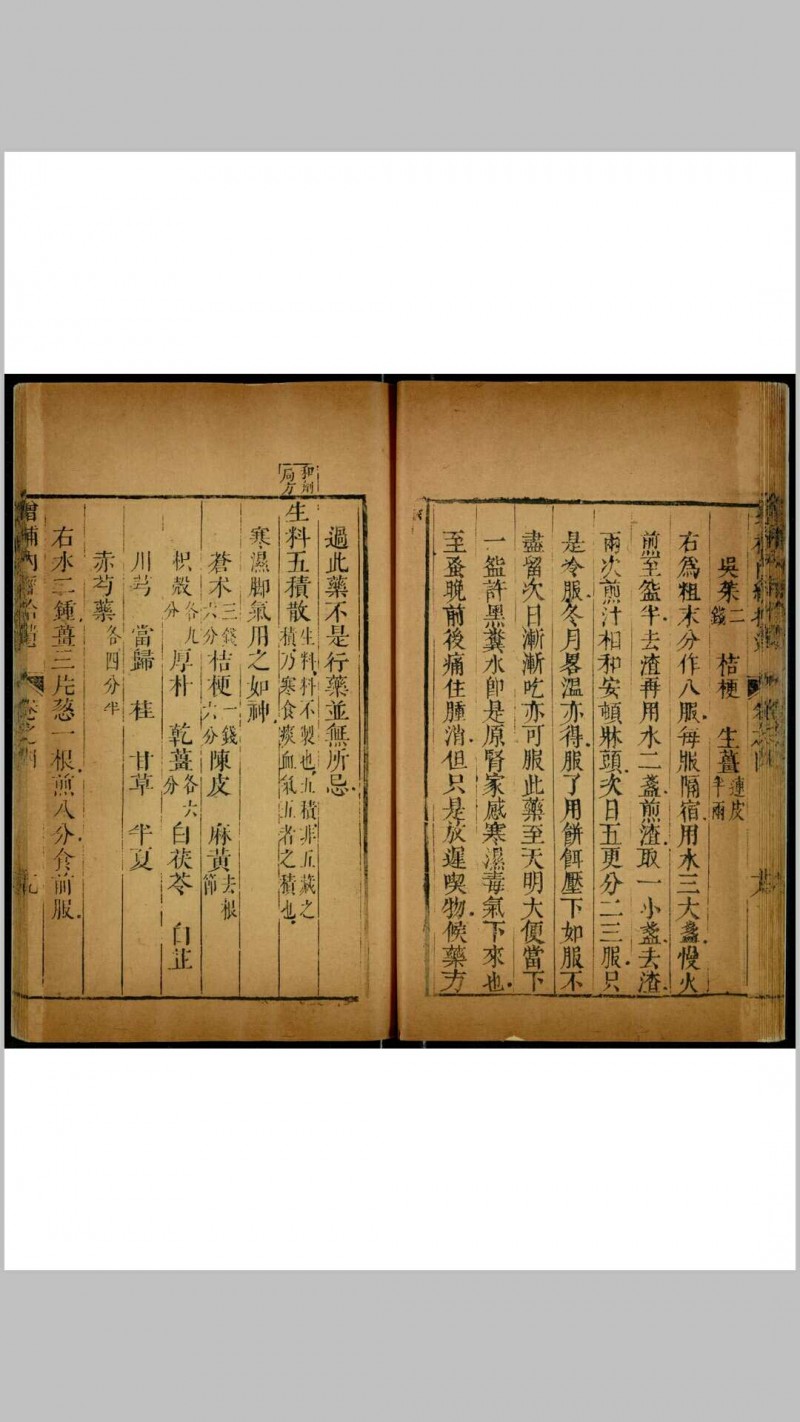 吳茱二錢 桔梗 生薑連皮半兩
右為粗末分作八服每服隔宿用水三大盞慢火
煎至盌半去渣再用水二盞煎渣取一小盞去渣
兩次煎汁相和安頓牀頭次日五更分二三服只
是冷服冬月畧溫亦得服了用餅餌壓下如服不
盡留次日漸漸吃亦可服此藥至天明大便當下
一盌許黑糞水卽是原腎家感寒濕毒氣下來也
至蚤晚前後痛住腫消但只是放遲喫物候藥方
過此藥不是行藥並無所忌
和劑局方
生料五積散生料料不製也五積非五藏之積乃寒食痰血氣五者之積也
寒濕脚氣用之如神
蒼术三錢六分 桔梗一錢六分 陳皮 麻黃去根節
枳殼各九分 厚朴 乾薑各六分 白茯苓 白芷
川芎 當歸 桂 甘草 半夏
赤芍藥各四分半
右水二鍾薑三片葱一根煎八分食前服
增補內經拾遺 卷之四